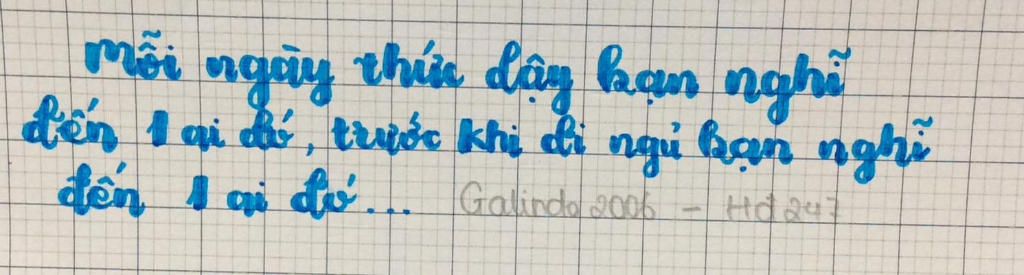 Mỗi ngày thức dậy bạn nghĩ
đến 1 ai đó, trước khi đi ngủ bạn nghĩ
đến 1 ai đó... Galindo 2006 - Hd 247